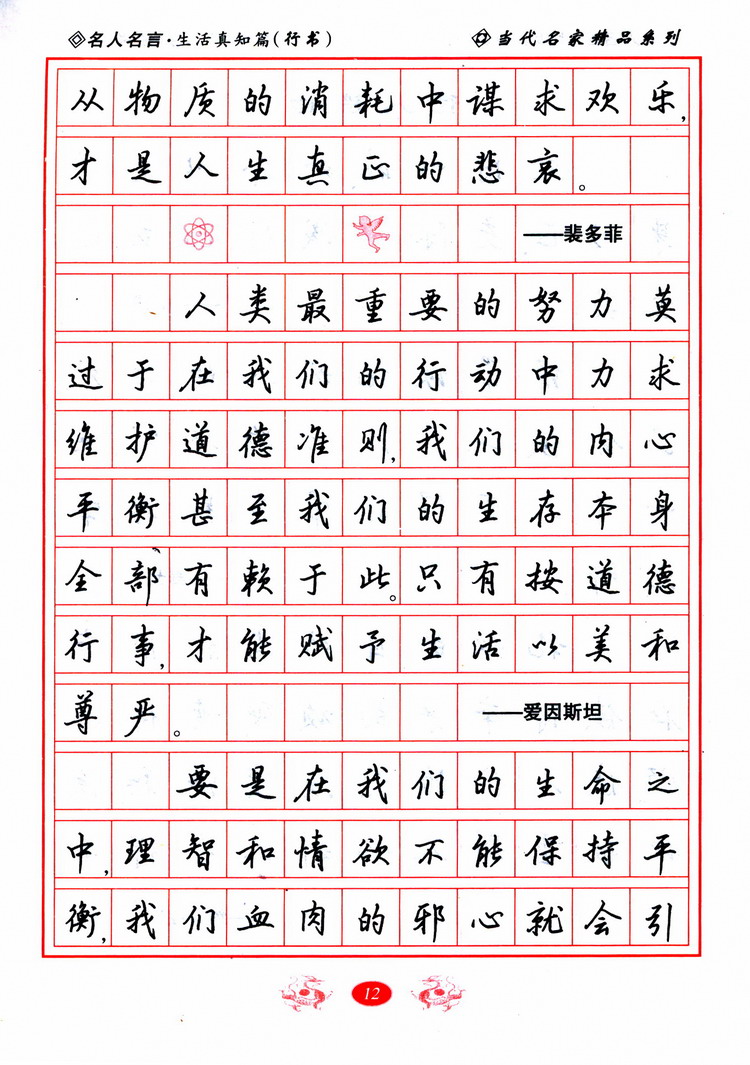 名人名言·生活真知篇(行书) 当代名家精品系列
从物质的消耗中谋求欢乐,
才是人生真正的悲哀。
——裴多菲
人类最重要的努力莫
过于在我们的行动中力求
维护道德准则,我们的内心
平衡甚至我们的生存本身
全部有赖于此。只有按道德
行事,才能赋予生活以美和
尊严。 ——爱因斯坦
要是在我们的生命之
中,理智和情欲不能保持平
衡,我们血肉的邪心就会引
12